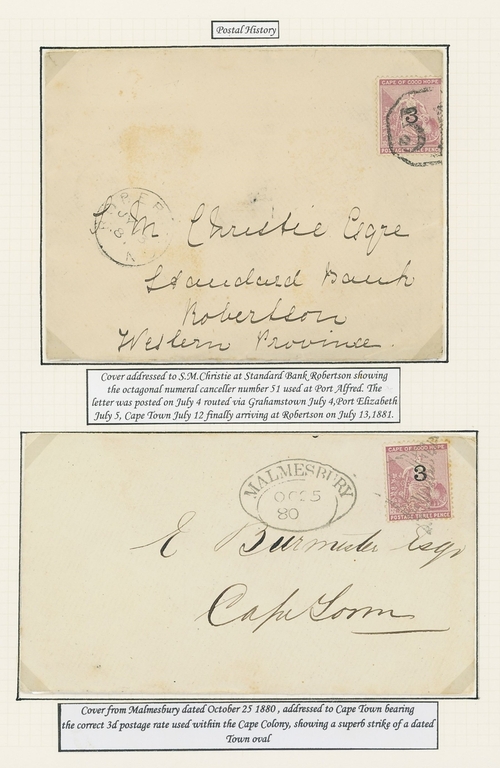 Postal History
CAPE OF GOOD HOPE
3
POSTAGE THREE PENCE
S. M. Christie Esqre
Standard Bank
Robertson
Western Province.
Cover addressed to S.M.Christie at Standard Bank Robertson showing
the octagonal numeral canceller number 51 used at Port Alfred. The
letter was posted on July 4 routed via Grahamstown July 4,Port Elizabeth
July 5, Cape Town July 12 finally arriving at Robertson on July 13,1881.
CAPE OF GOOD HOPE
3
POSTAGE THREE PENCE
MALMESBURY
OC 25
80
E Burmester Esqr
Cape Town
Cover from Malmesbury dated October 25 1880 , addressed to Cape Town bearing
the correct 3d postage rate used within the Cape Colony, showing a superb strike of a dated
Town oval